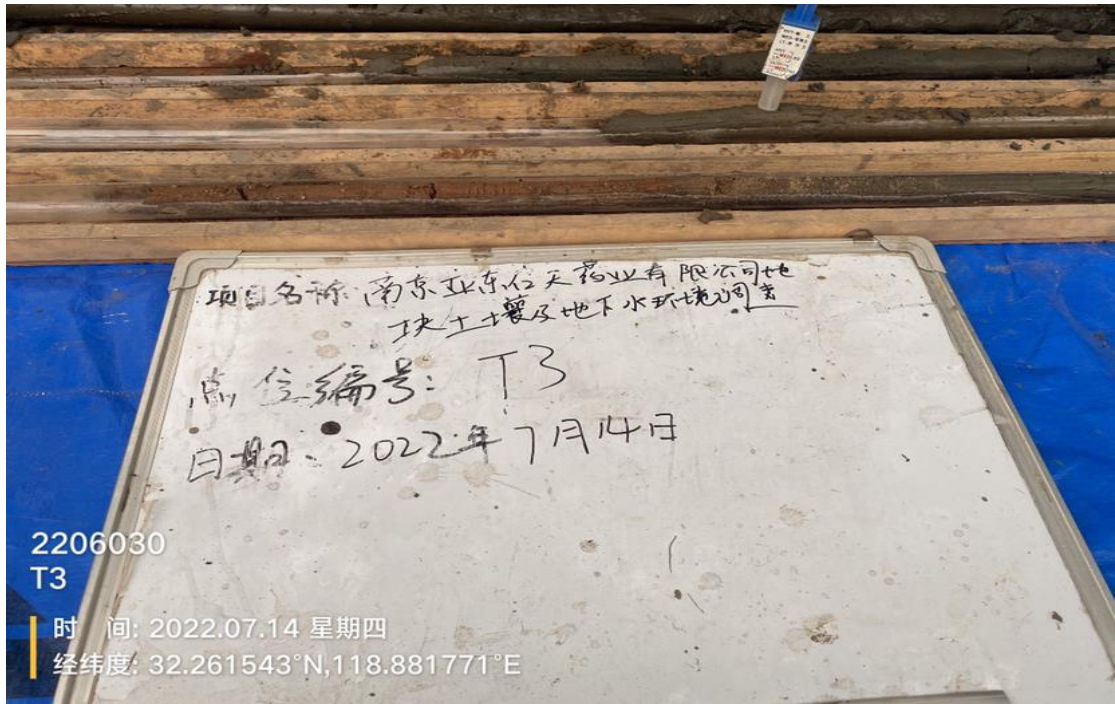 项目名称:南京亚东启天药业有限公司地
块土壤及地下水环境调查
点位编号: T3
日期: 2022年7月14日
2206030
T3
时 间: 2022.07.14 星期四
经纬度: 32.261543°N,118.881771°E